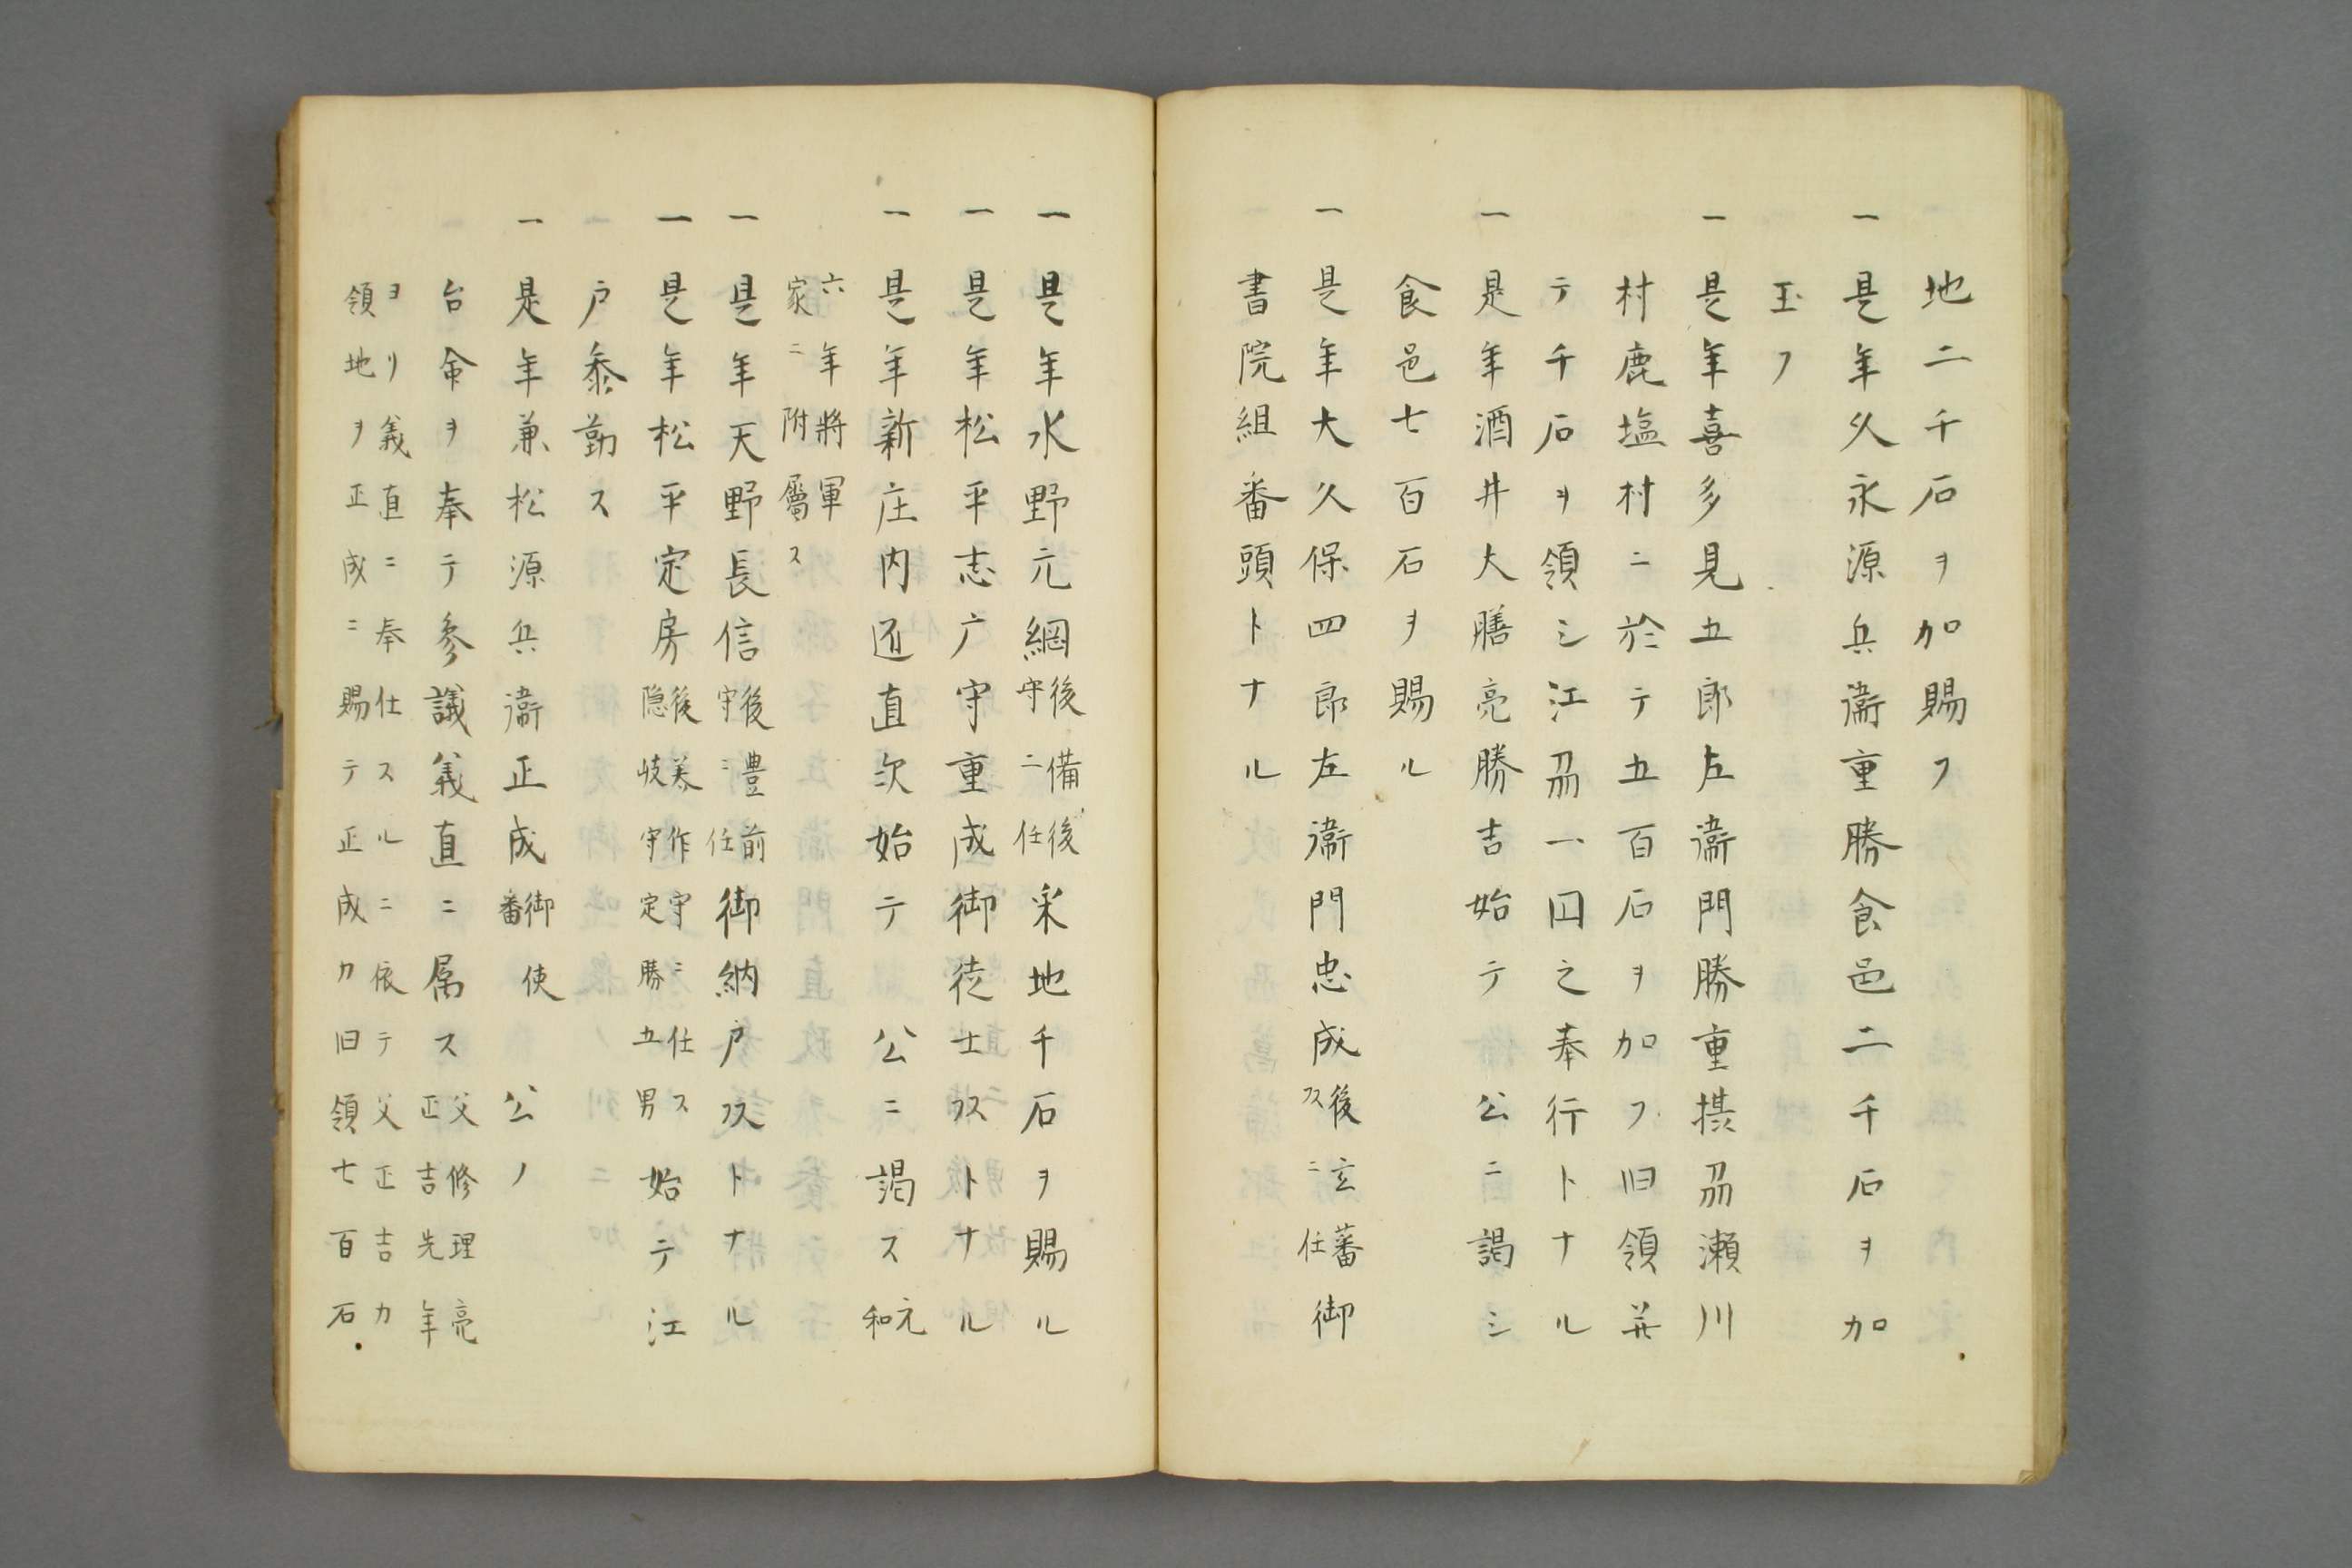 地二千石ヲ加賜フ
一 是年久永源兵衞重勝食邑二千石ヲ加
玉フ
一 是年喜多見五郎左衞門勝重摂刕瀬川
村鹿塩村ニ於テ五百石ヲ加フ旧領并
テ千石ヲ領シ江刕一囙之奉行トナル
一 是年酒井大膳亮勝吉始テ 公ニ謁シ
食邑七百石ヲ賜ル
一 是年大久保四郎左衞門忠成後玄蕃ニ任ス御
書院組番頭トナル
一 是年水野元綱後備後守ニ任采地千石ヲ賜ル
一 是年松平志广守重成御徒士頭トナル
一 是年新庄内匠直次始テ 公ニ謁ス元和
六年將軍家ニ附屬ス
一 是年天野長信後豊前守ニ任御納戸頭トナル
一 是年松平定房後美作守ニ仕ス隠岐守定勝五男始テ江
戸黍勤ス
一 是年兼松源兵衞正成御使番 公ノ
台命ヲ奉テ參議義直ニ属ス父修理亮正吉先年
ヨリ義直ニ奉仕スルニ依テ父正吉カ
領地ヲ正成ニ賜テ正成カ旧領七百石